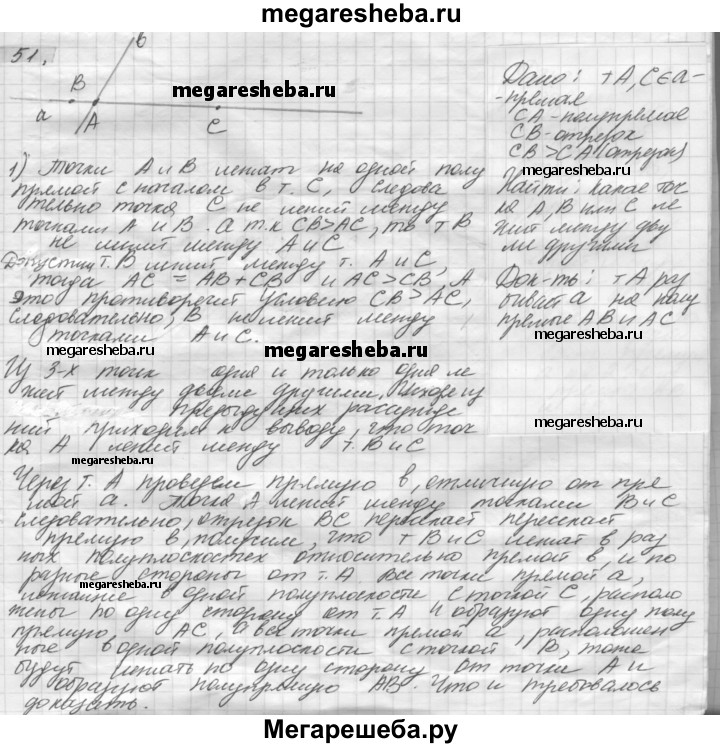 megaresheba.ru
51.
в
В
а
А
С
megaresheba.ru
Дано: т А, С ∈ а-
-прямая
СА-полупрямая
СВ-отрезок
СВ>СА (отрезок)
megaresheba.ru
Найти: какая точ
ка А, В или С ле
жит между дву
мя другими
Док-ть: т А раз
бивает а на полу
прямые АВ и АС
megaresheba.ru
1) Точки А и В лежат на одной полу
прямой с началом в т. С, следова
тельно точка С не лежит между
точками А и В. а т.к СВ>АС, то т В
не лежит между А и С
Допустим т. В лежит между т. А и С
тогда АС = АВ+СВ и АС>СВ, А
это противоречит условию СВ>АС,
следовательно, В не лежит между
точками А и С.
megaresheba.ru
megaresheba.ru
Из 3-х точек одна и только одна ле
жит между двумя другими, Исходя из
предыдущих рассужде
ний приходим к выводу, что точ
ка А лежит между т. В и С
megaresheba.ru
megaresheba.ru
Через т. А проведем прямую в, отличную от пря
мой а. Точка А лежит между точками В и С
следовательно, отрезок ВС пересекает пересекает
прямую в, получим, что т В и С лежат в раз
ных полуплоскостях относительно прямой в, и по
разные стороны от т. А Все точки прямой а,
лежащие в одной полуплоскости с точкой С, располо
жены по одну сторону от т. А и образуют одну полу
прямую АС, а все точки прямой а, расположен
ные в одной полуплоскости с точкой В, тоже
будут лежать по одну сторону от точки А и
образуют полупрямую АВ. Что и требовалось
доказать.
megaresheba.ru
megaresheba.ru
Мегарешеба.ру